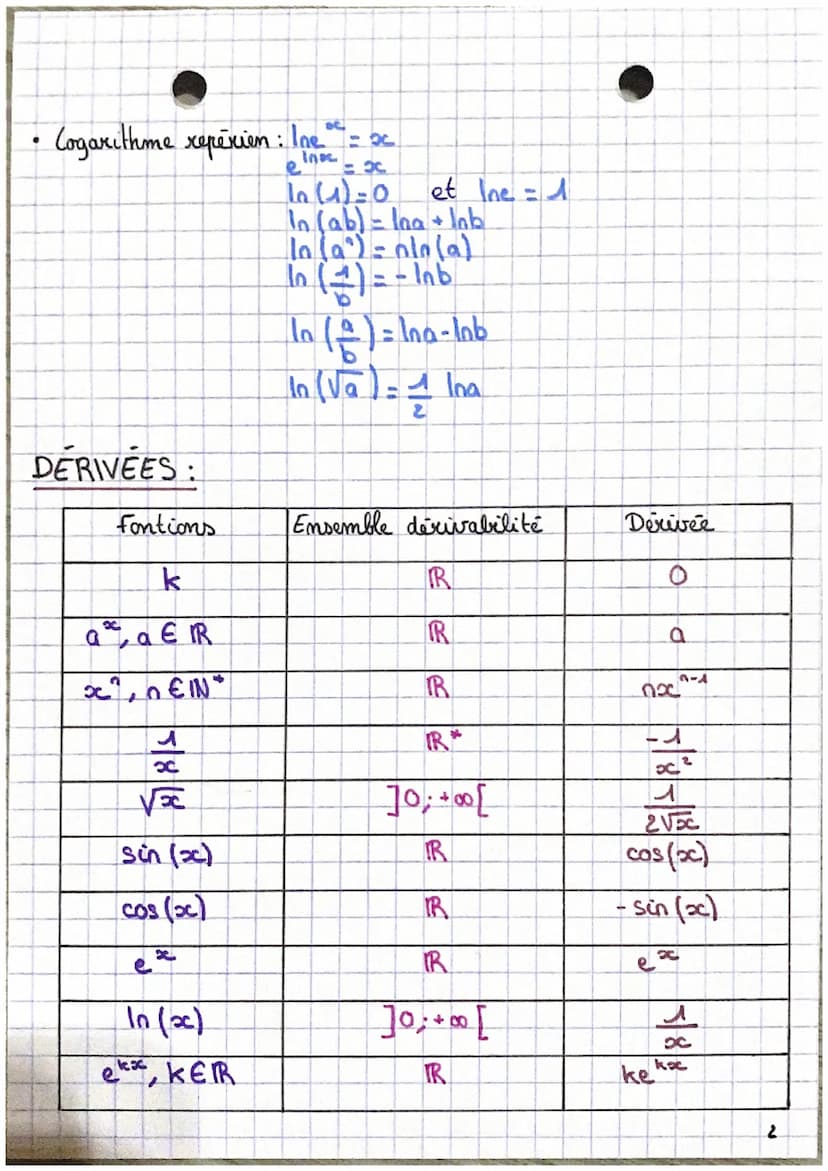 • Logarithme repérien : lne^x = x
e^lnx = x
ln(1) = 0 et lne = 1
ln(ab) = lna + lnb
ln(a^n) = nln(a)
ln(1/b) = - lnb
ln(a/b) = lna - lnb
ln(√a) = 1/2 lna
DÉRIVÉES :
Fontions Ensemble dérivabilité Dérivée
k ℝ 0
a^x, a ∈ ℝ ℝ a
x^n, n ∈ ℕ* ℝ nx^n-1
1/x ℝ* -1/x²
√x ]0; +∞[ 1/2√x
sin(x) ℝ cos(x)
cos(x) ℝ - sin(x)
e^x ℝ e^x
ln(x) ]0; +∞[ 1/x
e^kx, k ∈ ℝ ℝ ke^kx
2